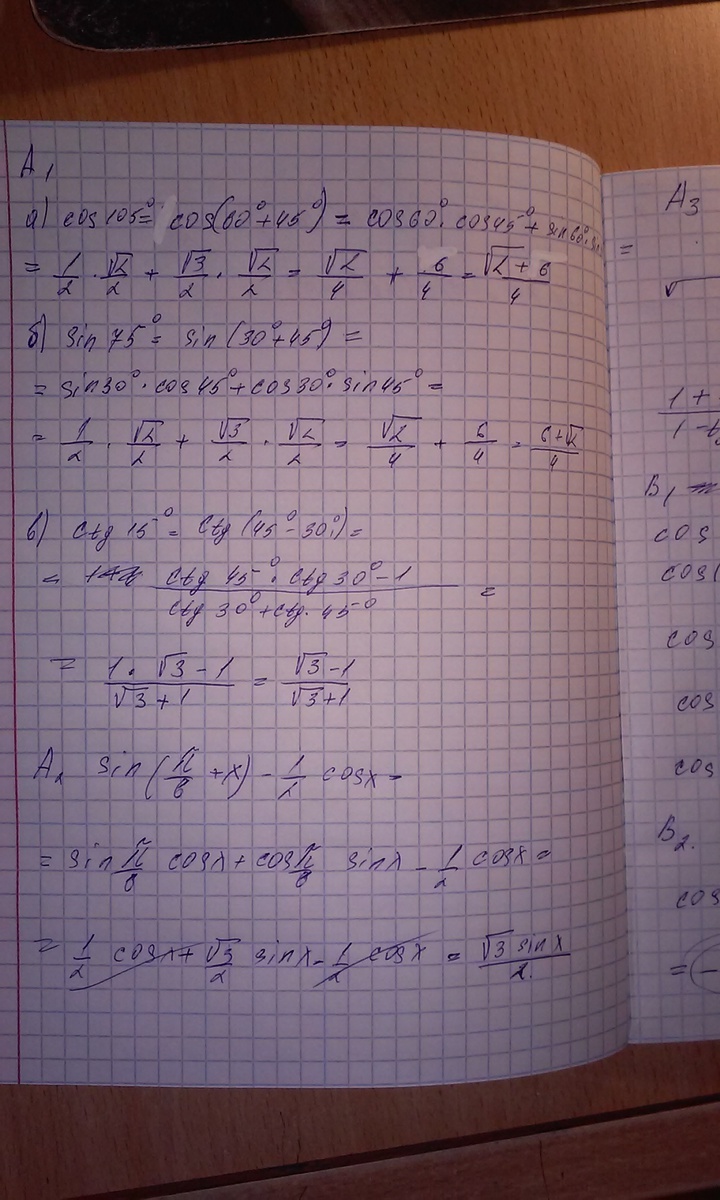 A₁
а) cos 105° = cos(60° + 45°) = cos60° · cos45° + sin60° · sin
= 1/2 · √2/2 + √3/2 · √2/2 = √2/4 + 6/4 = √2 + 6/4
б) sin 75° = sin (30° + 45°) =
= sin30° · cos45° + cos30° · sin45° =
= 1/2 · √2/2 + √3/2 · √2/2 = √2/4 + 6/4 = 6+√2/4
в) ctg 15° = ctg (45° - 30°) =
= ctg 45° · ctg 30° - 1 / ctg 30° + ctg 45° =
= 1 · √3 - 1 / √3 + 1 = √3 - 1 / √3 + 1
A₂ sin(π/6 + x) - 1/2 cosx =
= sin π/6 cosx + cos π/6 sinx - 1/2 cosx =
= 1/2 cosx + √3/2 sinx - 1/2 cosx = √3 sinx / 2
A₃
=
√
1 +
1 - t
B₁
cos
cos(
cos
cos
cos
B₂.
cos
= (-